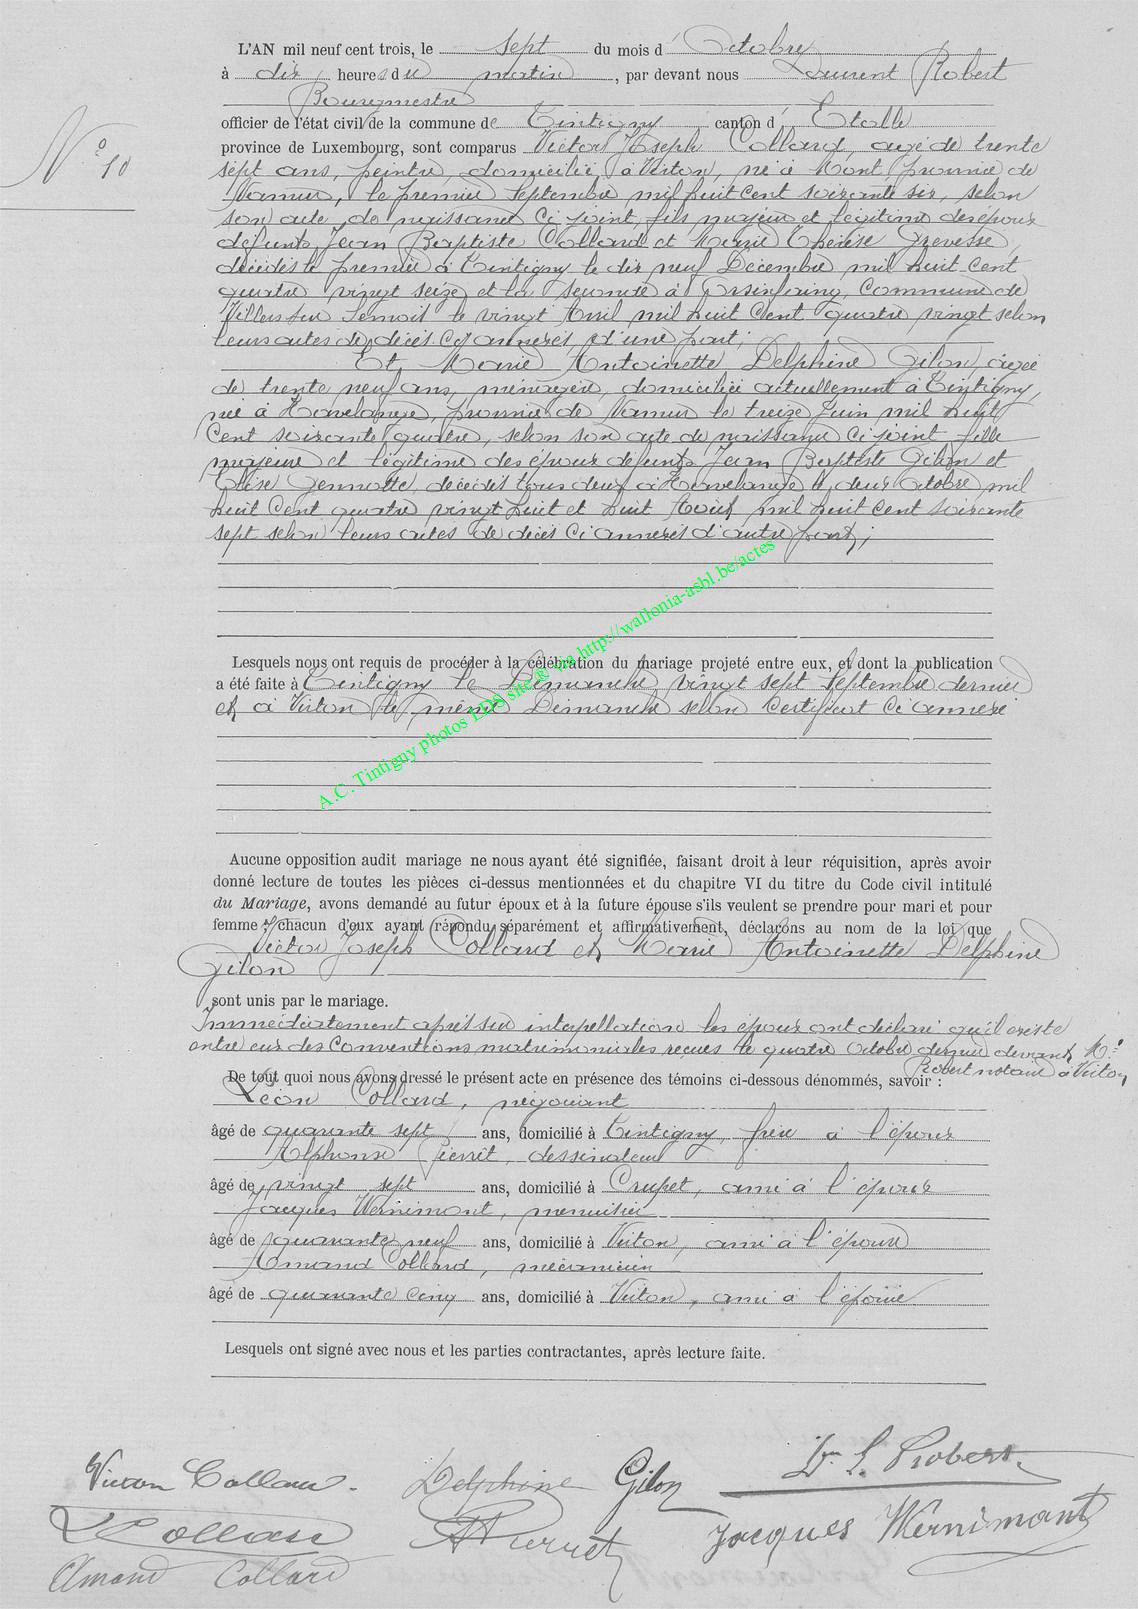 L'AN mil neuf cent trois, le sept du mois d'Octobre
à dix heures du matin, par devant nous Laurent Robert
Bourgmestre
officier de l'état civil de la commune de Tintigny canton d'Etalle
N° 10
province de Luxembourg, sont comparus Victor Joseph Collard, agé de trente
sept ans, peintre, domicilié à Virton, né à Mont province de
Namur, le premier Septembre mil huit cent soixante six, selon
son acte de naissance ci joint, fils majeur et légitime des époux
défunts Jean Baptiste Collard et Marie Thérèse Grevesse,
décédés le premier à Tintigny le dix neuf Décembre mil huit cent
quatre vingt seize et la seconde à Orsinfaing, commune de
Villers sur Semois le vingt Avril mil huit cent quatre vingt selon
leurs actes de décès ci annexés, d'une part;
Et Marie Antoinette Delphine Gilon, agée
de trente neuf ans, ménagère, domiciliée actuellement à Tintigny,
née à Havelange, province de Namur le treize Juin mil huit
cent soixante quatre, selon son acte de naissance ci joint fille
majeure et légitime des époux défunts Jean Baptiste Gilon et
Elise Jennotte, décédés tous deux à Havelange le deux Octobre mil
huit cent quatre vingt huit et huit Août mil huit cent soixante
sept selon leurs actes de décès ci annexés d'autre part;
Lesquels nous ont requis de procéder à la célébration du mariage projeté entre eux, et dont la publication
a été faite à Tintigny le Dimanche vingt sept Septembre dernier
et à Virton le même Dimanche selon certificat ci annexé
A.C. Tintigny photos EDS site @ via http://wallonia-asbl.be/actes
Aucune opposition audit mariage ne nous ayant été signifiée, faisant droit à leur réquisition, après avoir
donné lecture de toutes les pièces ci-dessus mentionnées et du chapitre VI du titre du Code civil intitulé
du Mariage, avons demandé au futur époux et à la future épouse s'ils veulent se prendre pour mari et pour
femme; chacun d'eux ayant répondu séparément et affirmativement, déclarons au nom de la loi que
Victor Joseph Collard et Marie Antoinette Delphine
Gilon
sont unis par le mariage.
Immédiatement après sur interpellation les époux ont déclaré qu'il existe
entre eux des conventions matrimoniales reçues le quatre Octobre dernier devant Me
Robert notaire à Virton
De tout quoi nous avons dressé le présent acte en présence des témoins ci-dessous dénommés, savoir :
Léon Collard, négociant
âgé de quarante sept ans, domicilié à Tintigny, frère à l'époux
Alphonse Pierret, dessinateur
âgé de vingt sept ans, domicilié à Crupet, ami à l'époux
Jacques Wernimont, menuisier
âgé de quarante neuf ans, domicilié à Virton, ami à l'épouse
Armand Collard, mécanicien
âgé de quarante cinq ans, domicilié à Virton, ami à l'épouse
Lesquels ont signé avec nous et les parties contractantes, après lecture faite.
Victor Collard. Delphine Gilon Dr. L. Robert.
L Collard A Pierret Jacques Wernimont
Amand Collard